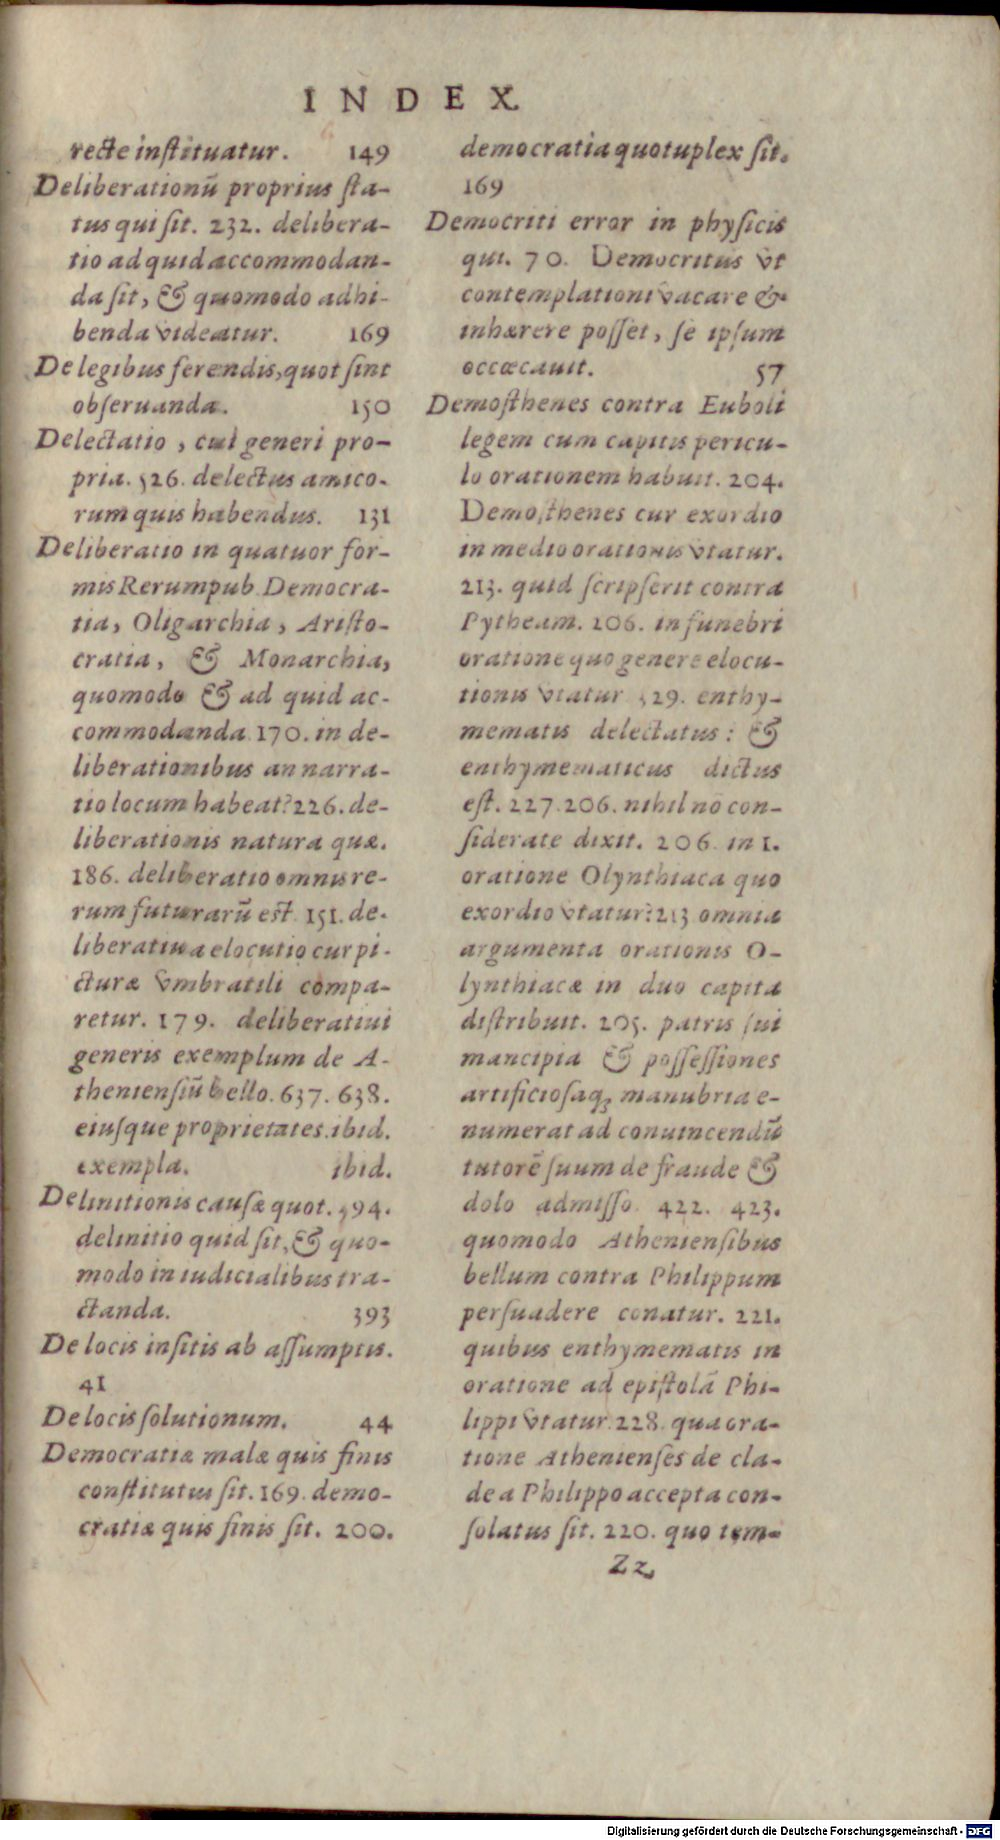 INDEX.
recte instituatur. 149
Deliberationū proprius sta-
tus qui sit. 232. delibera-
tio ad quid accommodan-
da sit, & quomodo adhi-
benda videatur. 169
De legibus ferendis, quot sint
obseruanda. 150
Delectatio, cui generi pro-
pria. 526. delectus amico-
rum quis habendus. 131
Deliberatio in quatuor for-
mis Rerumpub. Democra-
tia, Oligarchia, Aristo-
cratia, & Monarchia,
quomodo & ad quid ac-
commodanda. 170. in de-
liberationibus an narra-
tio locum habeat? 226. de-
liberationis natura quæ.
186. deliberatio omnis re-
rum futurarū est. 151. de-
liberatiua elocutio cur pi-
cturæ vmbratili compa-
retur. 179. deliberatiui
generis exemplum de A-
theniensiū bello. 637. 638.
eiusque proprietates. ibid.
exempla. ibid.
Delinitionis causæ quot. 394.
delinitio quid sit, & quo-
modo in iudicialibus tra-
ctanda. 393
De locis insitis ab assumptis.
41
De locis solutionum. 44
Democratiæ malæ quis finis
constitutus sit. 169. demo-
cratiæ quis finis sit. 200.
democratia quotuplex sit.
169
Democriti error in physicis
qui. 70. Democritus vt
contemplationi vacare &
inhærere posset, se ipsum
occæcauit. 57
Demosthenes contra Euboli
legem cum capitis pericu-
lo orationem habuit. 204.
Demosthenes cur exordio
in medio orationis vtatur.
213. quid scripserit contra
Pytheam. 206. in funebri
oratione quo genere elocu-
tionis vtatur 529. enthy-
mematis delectatus: &
enthymematicus dictus
est. 227. 206. nihil nō con-
siderate dixit. 206. in 1.
oratione Olynthiaca quo
exordio vtatur: 213 omnia
argumenta orationis O-
lynthiacæ in duo capita
distribuit. 205. patris sui
mancipia & possessiones
artificiosaq; manubria e-
numerat ad conuincendū
tutorē suum de fraude &
dolo admisso. 422. 423.
quomodo Atheniensibus
bellum contra Philippum
persuadere conatur. 221.
quibus enthymematis in
oratione ad epistolā Phi-
lippi vtatur. 228. qua ora-
tione Athenienses de cla-
de a Philippo accepta con-
solatus sit. 220. quo tem-
Zz
Digitalisierung gefördert durch die Deutsche Forschungsgemeinschaft - DFG